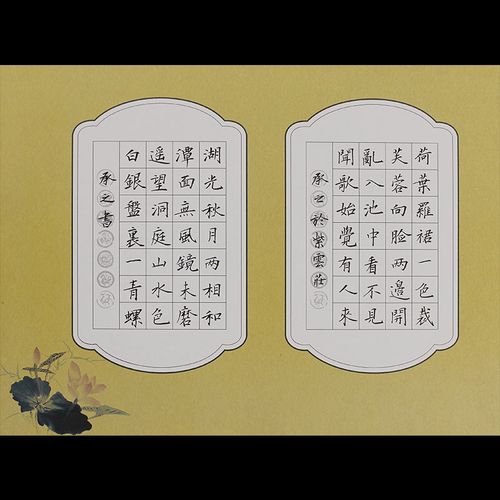 荷葉羅裙一色裁
芙蓉向脸两邊開
亂入池中看不見
聞歌始覺有人來
承之於紫雲莊
湖光秋月两相和
潭面無風鏡未磨
遥望洞庭山水色
白銀盤裏一青螺
承之書